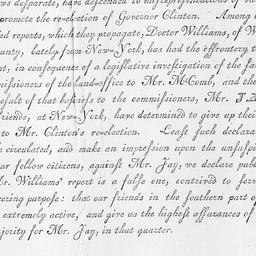 ws disparate, have descended to misrepresentations of
promote the re-election of Governor Clinton. Among
ed reports, which they propagate, Doctor Williams, of W
ounty, lately from New-York, has had the effrontery to
at, in consequence of a legislative investigation of the
missioners of the land-office to Mr. M'Comb, and the
efult of that business to the commissioners, Mr. J
riends, at New-York, have determined to give up their
to Mr. Clinton's re-election. Least such declara
e circulated, and make an impression upon the unsuspi
ur fellow citizens, against Mr. Jay, we declare publ
r. Williams' report is a false one, contrived to ser
eering purpose: that our friends in the southern part of
extremely active, and give us the highest assurances of
jority for Mr. Jay, in that quarter.